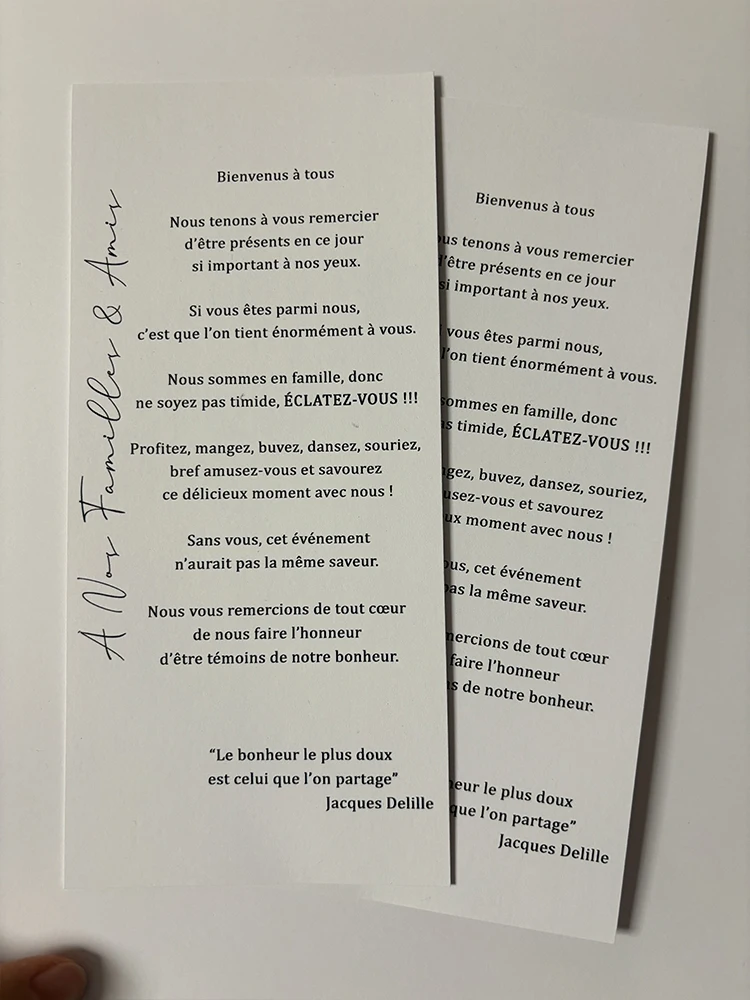 A Nos Familles & Amis
Bienvenus à tous
Nous tenons à vous remercier
d'être présents en ce jour
si important à nos yeux.
Si vous êtes parmi nous,
c'est que l'on tient énormément à vous.
Nous sommes en famille, donc
ne soyez pas timide, ÉCLATEZ-VOUS !!!
Profitez, mangez, buvez, dansez, souriez,
bref amusez-vous et savourez
ce délicieux moment avec nous !
Sans vous, cet événement
n'aurait pas la même saveur.
Nous vous remercions de tout cœur
de nous faire l'honneur
d'être témoins de notre bonheur.
“Le bonheur le plus doux
est celui que l'on partage”
Jacques Delille
Bienvenus à tous
ous tenons à vous remercier
d'être présents en ce jour
si important à nos yeux.
vous êtes parmi nous,
l'on tient énormément à vous.
sommes en famille, donc
s timide, ÉCLATEZ-VOUS !!!
gez, buvez, dansez, souriez,
usez-vous et savourez
ux moment avec nous !
ous, cet événement
pas la même saveur.
mercions de tout cœur
faire l'honneur
s de notre bonheur.
heur le plus doux
que l'on partage”
Jacques Delille